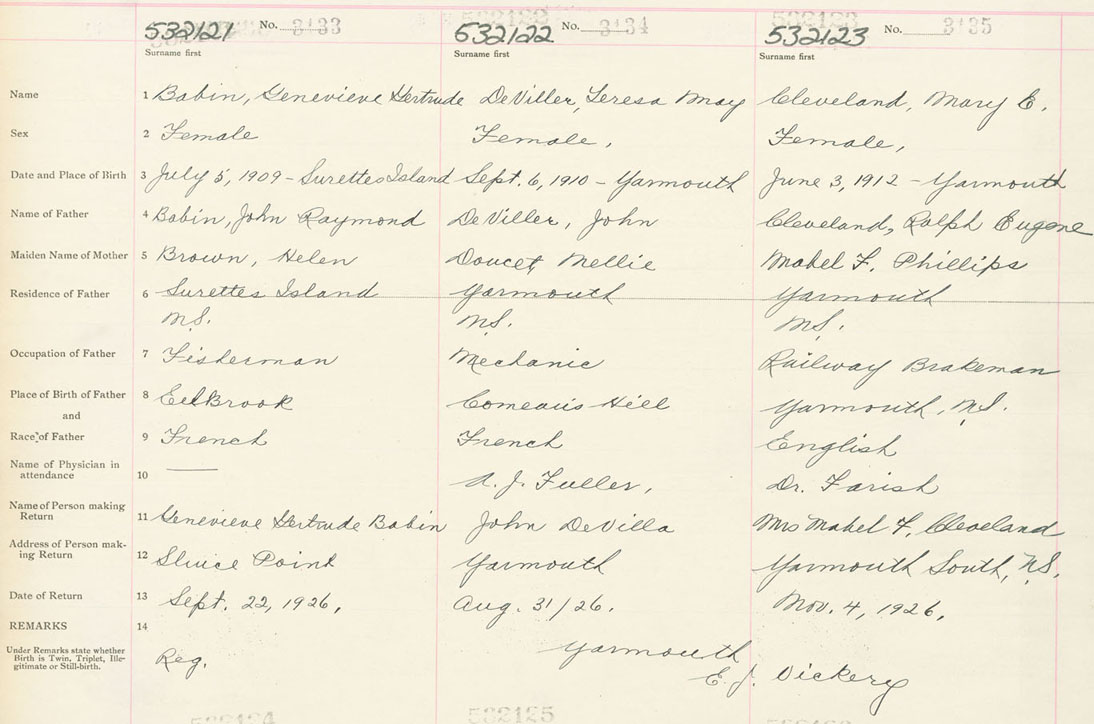 532121 No. 3133 532122 No. 3134 532123 No. 3135
Surname first Surname first Surname first
Name 1 Babin, Genevieve Gertrude DeViller, Teresa May Cleveland, Mary E.
Sex 2 Female Female, Female,
Date and Place of Birth 3 July 5, 1909 - Surettes Island Sept. 6, 1910 - Yarmouth June 3, 1912 - Yarmouth
Name of Father 4 Babin, John Raymond DeViller, John Cleveland, Ralph Eugene
Maiden Name of Mother 5 Brown, Helen Doucet, Mellie Mabel F. Phillips
Residence of Father 6 Surettes Island Yarmouth Yarmouth
N.S. N.S. N.S.
Occupation of Father 7 Fisherman Mechanic Railway Brakeman
Place of Birth of Father 8 EelBrook Comeau's Hill Yarmouth, N.S.
and
Race of Father 9 French French English
Name of Physician in
attendance 10 —— A. J. Fuller, Dr. Farish
Name of Person making
Return 11 Genevieve Gertrude Babin John DeVilla Mrs Mabel F. Cleveland
Address of Person mak-
ing Return 12 Sluice Point Yarmouth Yarmouth South, N.S.
Date of Return 13 Sept. 22, 1926. Aug. 31/26. Nov. 4, 1926.
REMARKS 14
Under Remarks state whether
Birth is Twin, Triplet, Ille-
gitimate or Still-birth.
Reg. Yarmouth
E. J. Vickery
532124 532125